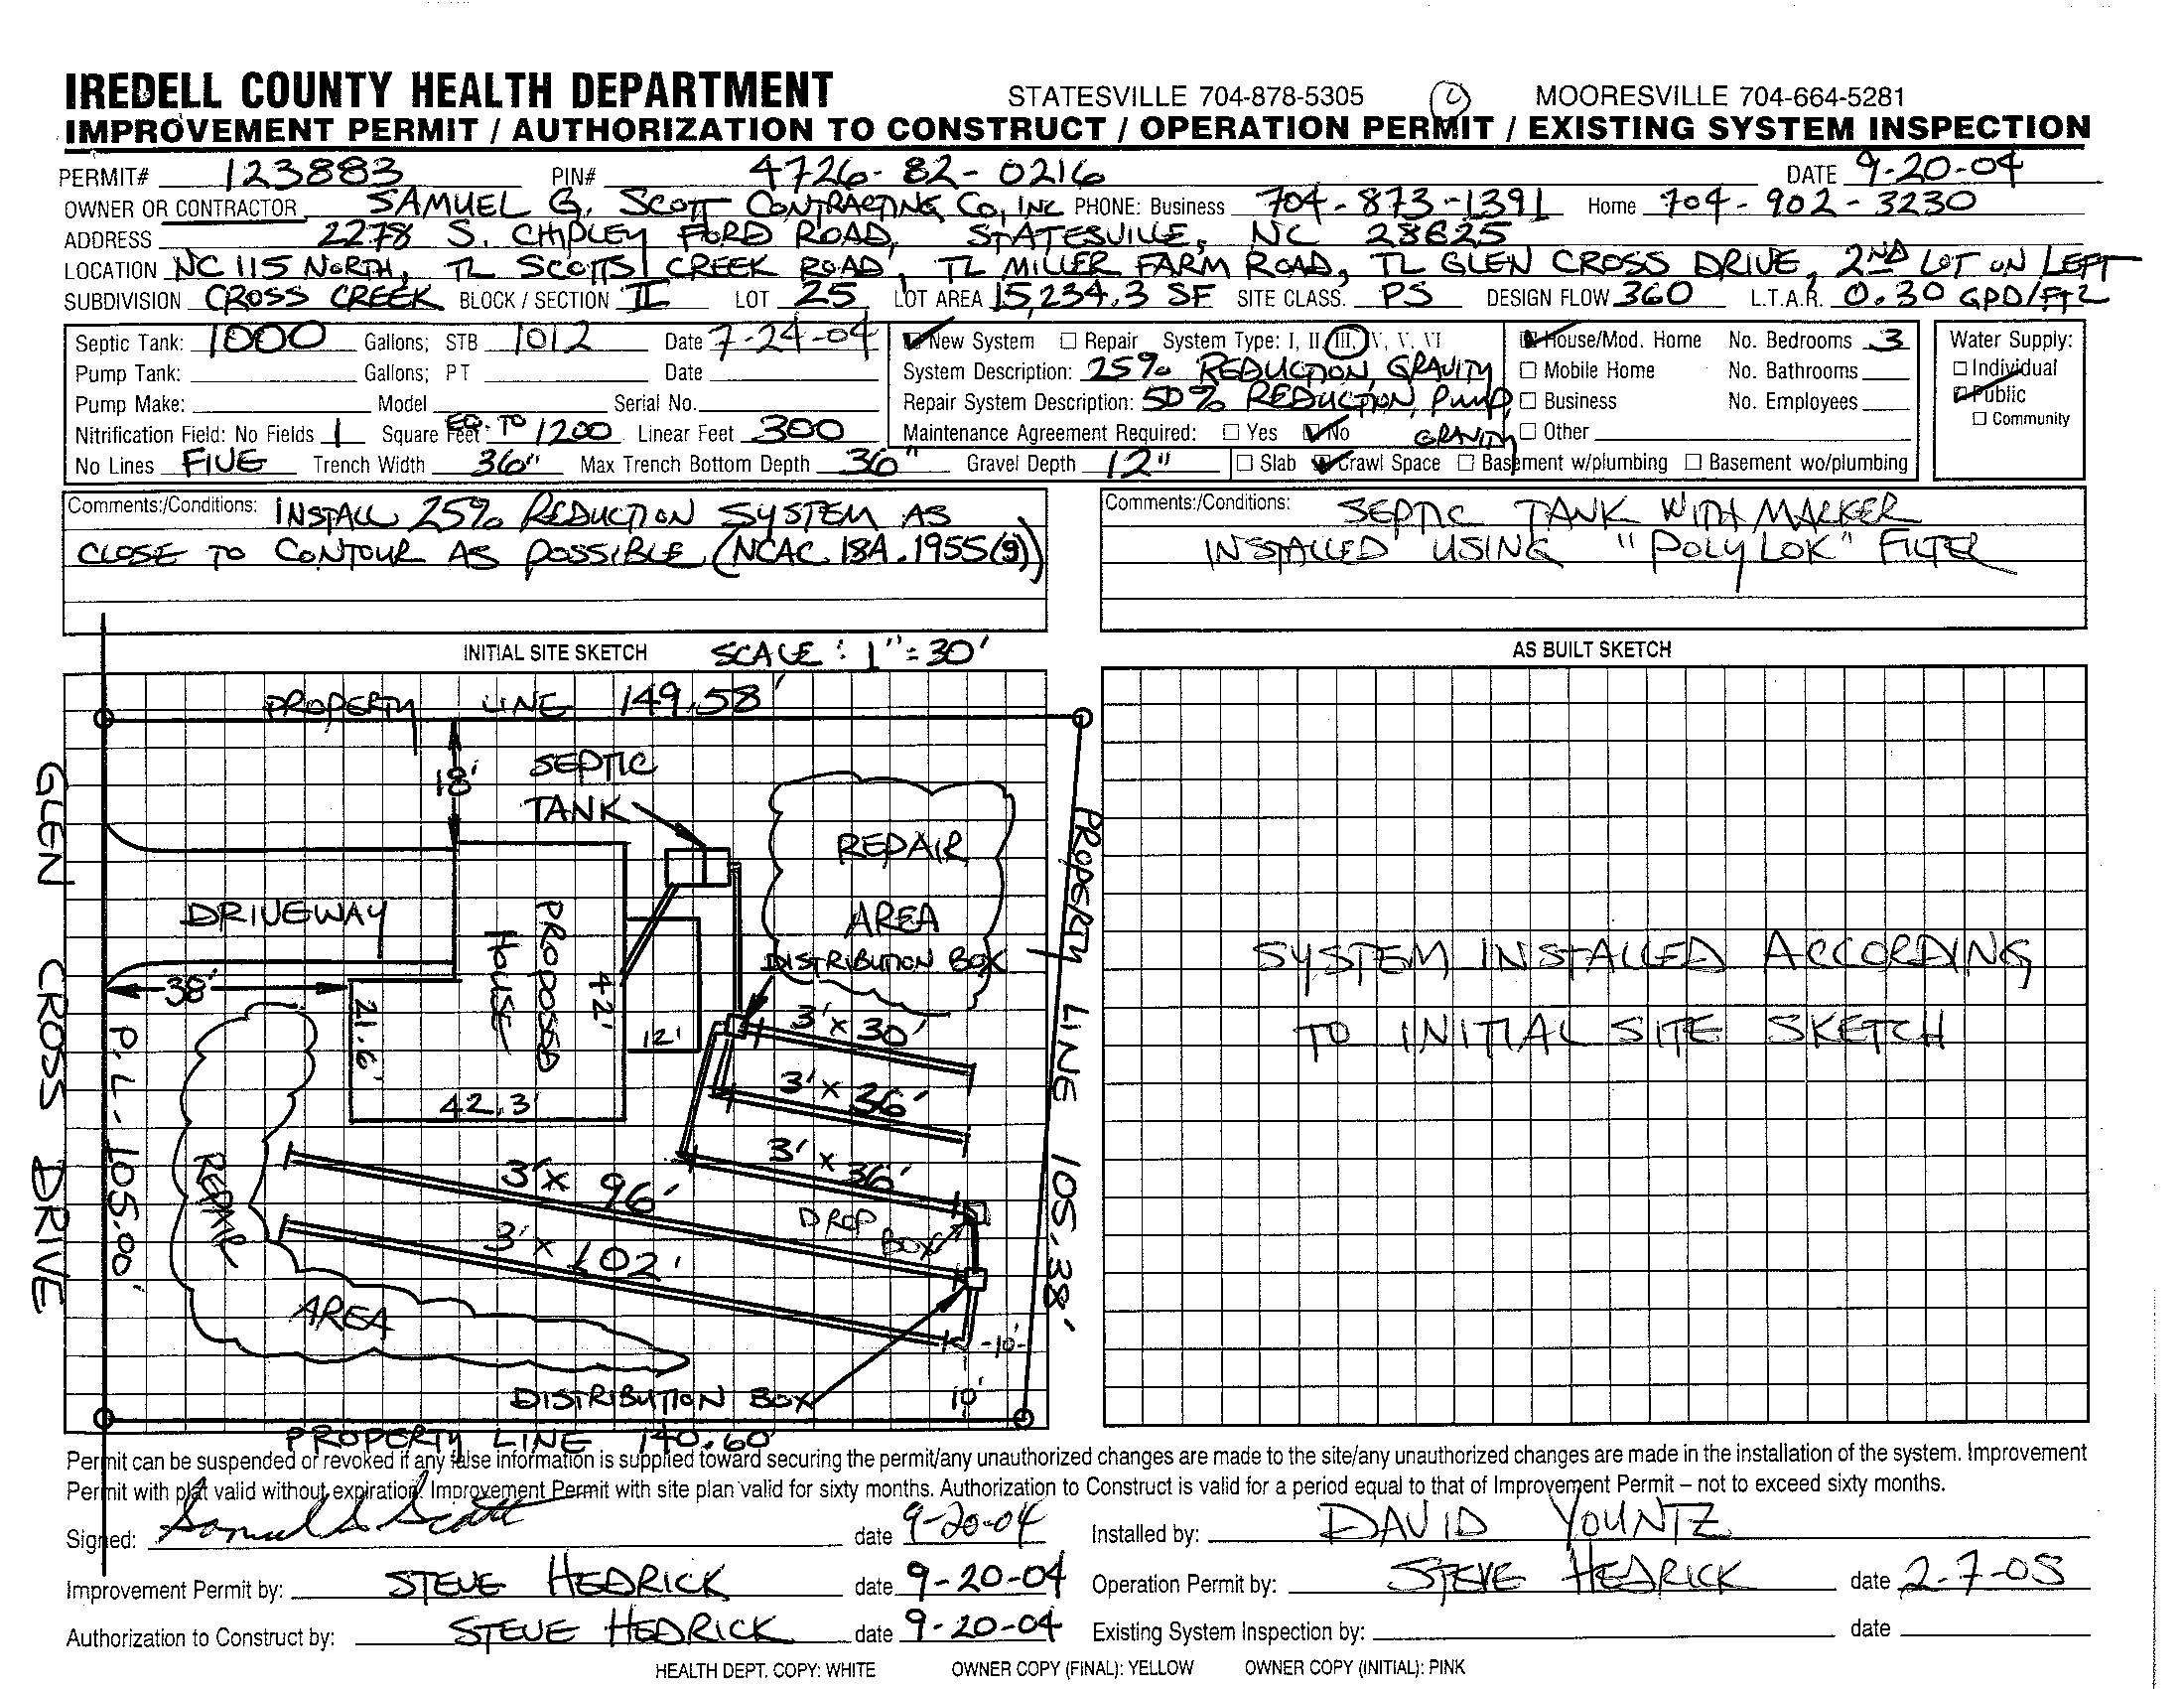 IREDELL COUNTY HEALTH DEPARTMENT STATESVILLE 704-878-5305 MOORESVILLE 704-664-5281
IMPROVEMENT PERMIT / AUTHORIZATION TO CONSTRUCT / OPERATION PERMIT / EXISTING SYSTEM INSPECTION
PERMIT# 123883 PIN# 4726-82-0216 DATE 9-20-04
OWNER OR CONTRACTOR SAMUEL G. SCOTT CONTRACTING CO, INC PHONE: Business 704-873-1391 Home 704-902-3230
ADDRESS 2278 S. CHIPLEY FORD ROAD, STATESVILLE, NC 28625
LOCATION NC 115 NORTH, TL SCOTTS CREEK ROAD, TL MILLER FARM ROAD, TL GLEN CROSS DRIVE, 2ND LOT ON LEFT
SUBDIVISION CROSS CREEK BLOCK / SECTION II LOT 25 LOT AREA 15,234.3 SF SITE CLASS. PS DESIGN FLOW 360 L.T.A.R. 0.30 GPD/FT2
Septic Tank: 1000 Gallons; STB 1012 Date 7-24-04 New System Repair System Type: I, II, III, IV, V, VI House/Mod. Home No. Bedrooms 3 Water Supply:
Pump Tank: Gallons; PT Date System Description: 25% REDUCTION, GRAVITY Mobile Home No. Bathrooms Individual
Pump Make: Model Serial No. Repair System Description: 50% REDUCTION, PUMP, GRAVITY Business No. Employees Public
Nitrification Field: No Fields 1 Square Feet EQ. TO 1200 Linear Feet 300 Maintenance Agreement Required: Yes No Other Community
No Lines FIVE Trench Width 36" Max Trench Bottom Depth 36" Gravel Depth 12" Slab Crawl Space Basement w/plumbing Basement wo/plumbing
Comments:/Conditions: INSTALL 25% REDUCTION SYSTEM AS
CLOSE TO CONTOUR AS POSSIBLE (NCAC 18A.1955(g))
Comments:/Conditions: SEPTIC TANK WITH MARKER
INSTALLED USING "POLYLOK" FILTER
INITIAL SITE SKETCH SCALE: 1"=30'
PROPERTY LINE 149.58'
18'
SEPTIC
TANK
REPAIR
AREA
GLEN CROSS DRIVE
DRIVEWAY
PROPOSED
HOUSE
42'
12'
38'
21.6'
42.3'
DISTRIBUTION BOX
PROPERTY LINE 105.38'
P.L. - 105.00'
3' x 30'
3' x 36'
3' x 36'
3' x 96'
3' x 102'
DROP
BOX
REPAIR
AREA
-10'-
10'
DISTRIBUTION BOX
PROPERTY LINE 140.60
AS BUILT SKETCH
SYSTEM INSTALLED ACCORDING
TO INITIAL SITE SKETCH
Permit can be suspended or revoked if any false information is supplied toward securing the permit/any unauthorized changes are made to the site/any unauthorized changes are made in the installation of the system. Improvement
Permit with plat valid without expiration. Improvement Permit with site plan valid for sixty months. Authorization to Construct is valid for a period equal to that of Improvement Permit – not to exceed sixty months.
Signed: Samuel G Scott date 9-20-04 Installed by: DAVID YOUNTZ
Improvement Permit by: STEVE HEDRICK date 9-20-04 Operation Permit by: STEVE HEDRICK date 2-7-05
Authorization to Construct by: STEVE HEDRICK date 9-20-04 Existing System Inspection by: date
HEALTH DEPT. COPY: WHITE OWNER COPY (FINAL): YELLOW OWNER COPY (INITIAL): PINK